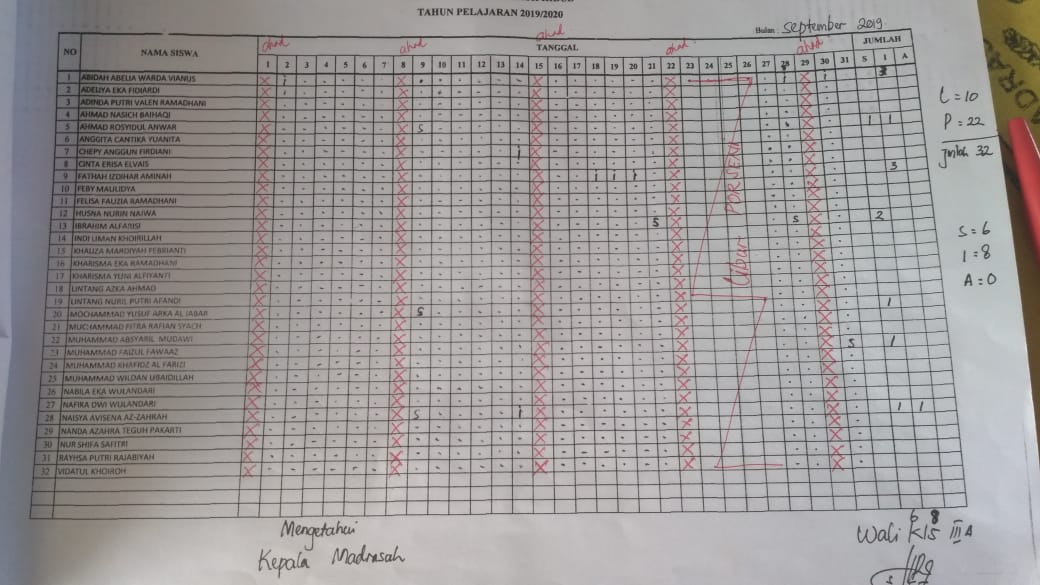 TAHUN PELAJARAN 2019/2020
Bulan : September 2019
NO NAMA SISWA TANGGAL JUMLAH
ahad ahad ahad ahad ahad
1 2 3 4 5 6 7 8 9 10 11 12 13 14 15 16 17 18 19 20 21 22 23 24 25 26 27 28 29 30 31 S I A
1 ABIDAH ABELIA WARDA VIANUS
2 ADELIYA EKA FIDIARDI
3 ADINDA PUTRI VALEN RAMADHANI
4 AHMAD NASICH BAIHAQI
5 AHMAD ROSYIDUL ANWAR S 1 1
6 ANGGITA CANTIKA YUANITA
7 CHEPY ANGGUN FIRDIANI i
8 CINTA ERISA ELVAIS
9 FATHAH IZDIHAR AMINAH i i i 3
10 FEBY MAULIDYA
11 FELISA FAUZIA RAMADHANI
12 HUSNA NURIN NAJWA
13 IBRAHIM ALFARISI S S 2
14 INDI LIMAN KHOIRILLAH
15 KHALIZA MARDIYAH FEBRIANTI
16 KHARISMA EKA RAMADHANI
17 KHARISMA YUNI ALFIYANTI
18 LINTANG AZKA AHMAD
19 LINTANG NURIL PUTRI AFANDI
20 MOCHAMMAD YUSUF ARKA AL JABAR S 1
21 MUCHAMMAD FITRA RAFIAN SYACH
22 MUHAMMAD ABSYARIL MUDAWI
23 MUHAMMAD FAIZUL FAWAAZ S 1
24 MUHAMMAD KHAFIDZ AL FARIZI
25 MUHAMMAD WILDAN UBAIDILLAH
26 NABILA EKA WULANDARI
27 NAFIKA DWI WULANDARI
28 NAISYA AVISENA AZ-ZAHRAH S i 1 1
29 NANDA AZAHRA TEGUH PAKARTI
30 NUR SHIFA SAFITRI
31 RAYHSA PUTRI RAJABIYAH
32 VIDATUL KHOIROH
Libur PORSENI
L = 10
P = 22
Jmlah 32
S = 6
I = 8
A = 0
6 8
Mengetahui
Kepala Madrasah
Wali Kls III A